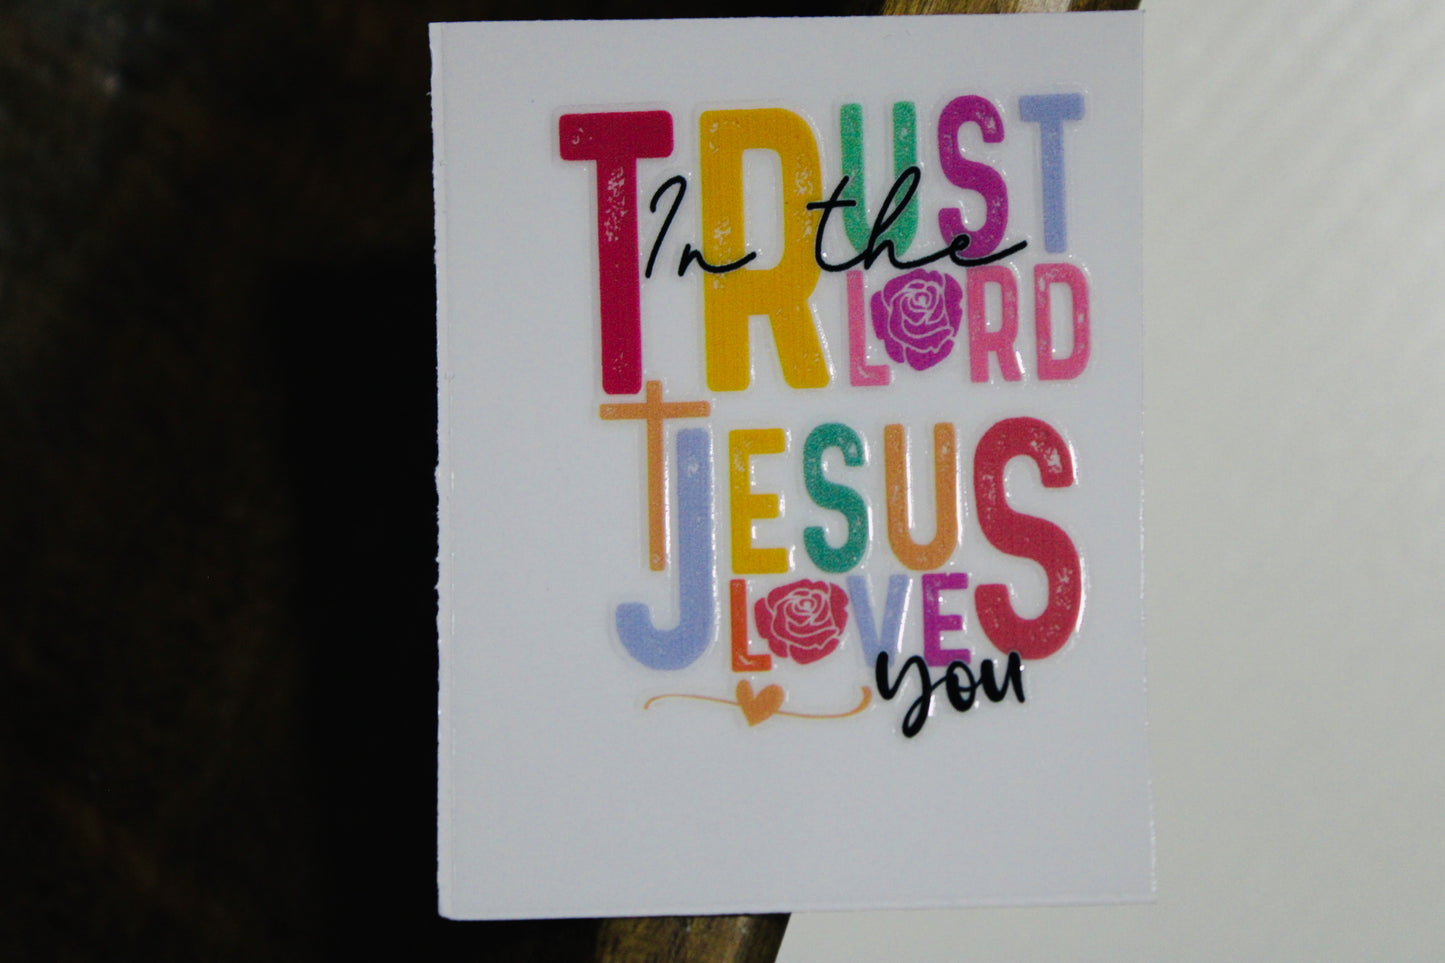 TRUST
In the
LORD
JESUS
LOVE
you